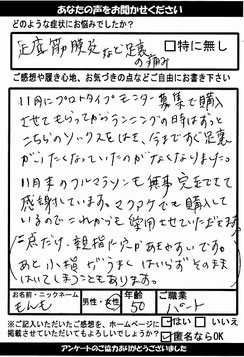 あなたの声をお聞かせください
どのような症状にお悩みでしたか？
足底筋膜炎など足裏の痛み
□特に無し
ご感想や履き心地、お気づきの点などご自由にお書き下さい
11月にプロトタイプモニター募集で購入
させてもらってからランニングの時はずっと
こちらのソックスをはき、今まですぐ足裏
がいたくなっていたのがなくなりました。
11月末のフルマラソンも無事完走できて
感謝しています。マラソンでも購入して
いるのでこれからも愛用させていただきます。
一点だけ、親指に穴があきやすいです。
あと小指がうまくはいらずそのまま
はいてしまうこともあります。
お名前・ニックネーム
もんも
男性・女性
年齢
50
ご職業
パート
※ご記入いただいたご感想を、ホームページに
掲載させていただいてもよろしいでしょうか？
はい
いいえ
匿名ならOK
アンケートのご協力ありがとうございました